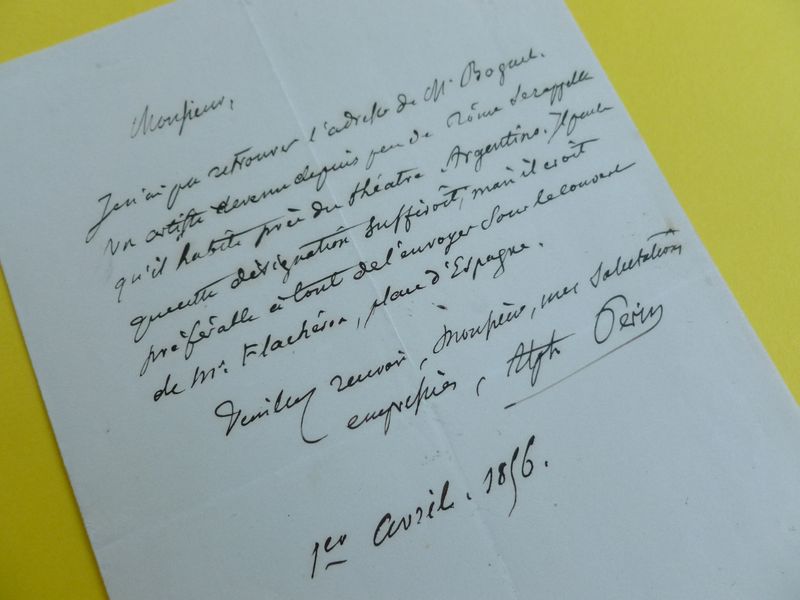 Monsieur,
Je n'ai pu retrouver l'adresse de Mr Boguet.
Un artiste devenu depuis peu de Rôme se rappelle
qu'il habite près du théatre Argentino. Il pense
que cette désignation suffiroit, mais il croit
préférable à tout de l'envoyer sous le couvert
de Mr Flachéron, place d'Espagne.
Veuillez recevoir, Monsieur, mes salutations
empressées, Alph Perin
1er avril. 1856.